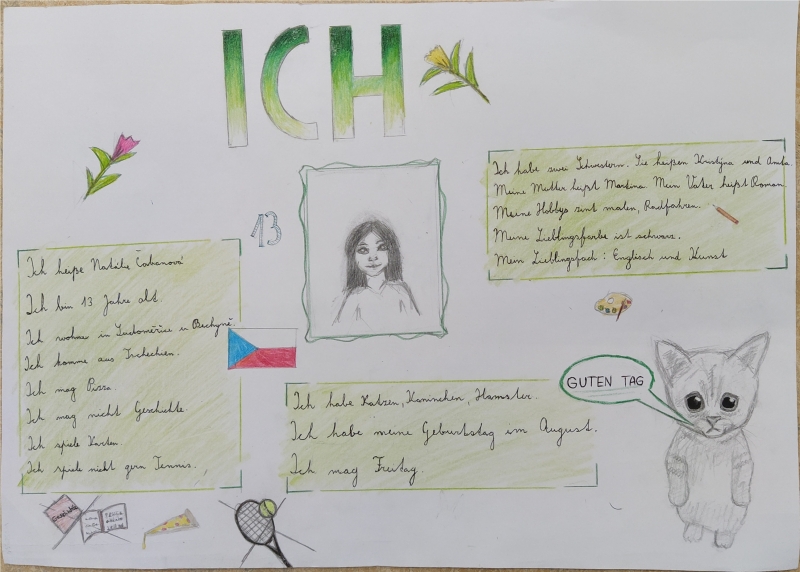 ICH
13
Ich heiße Natálie
Ich bin 13 Jahre alt
Ich wohne in u Bechyně.
Ich komme aus Tschechien.
Ich mag Pizza.
Ich mag nicht Geschichte
Ich spiele Karten.
Ich spiele nicht gern Tennis.
Ich habe zwei Schwestern. Sie heißen Kristýna und
Meine Mutter heißt Martina. Mein Vater heißt Roman.
Meine Hobbys sint malen, Radfahren.
Meine Lieblingsfarbe ist schwarz.
Mein Lieblingsfach: Englisch und Kunst
Ich habe Katzen, Kaninchen, Hamster.
Ich habe meine Geburtstag im August.
Ich mag Freitag.
GUTEN TAG